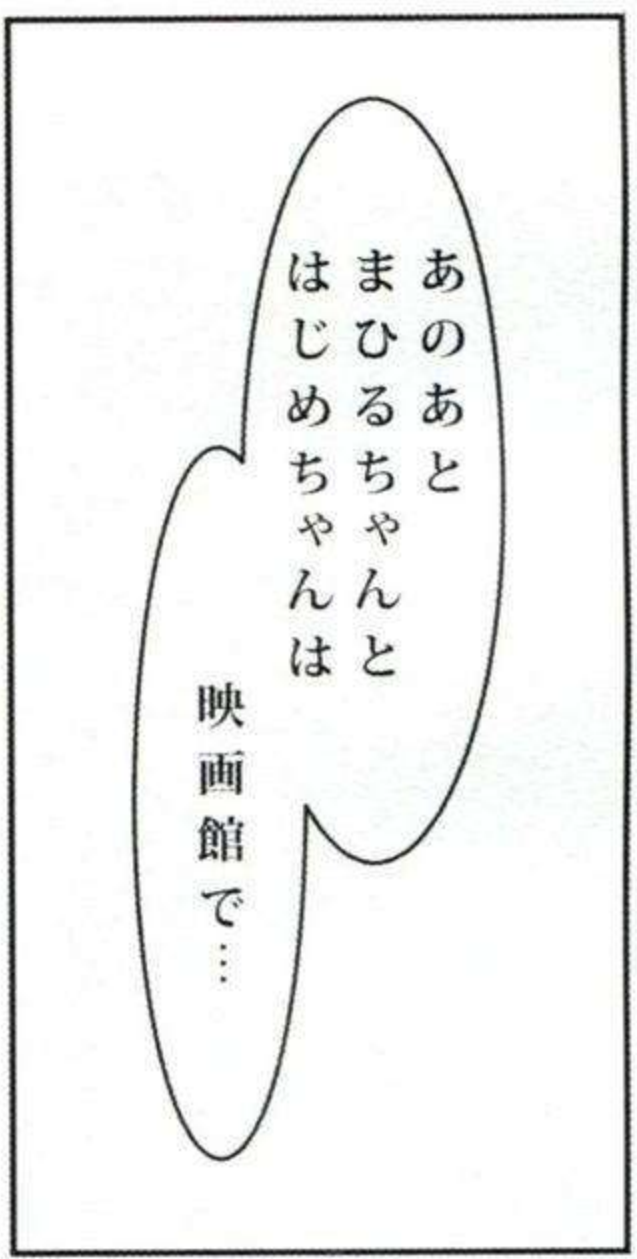 あのあと
まひるちゃんと
はじめちゃんは
映画館で…